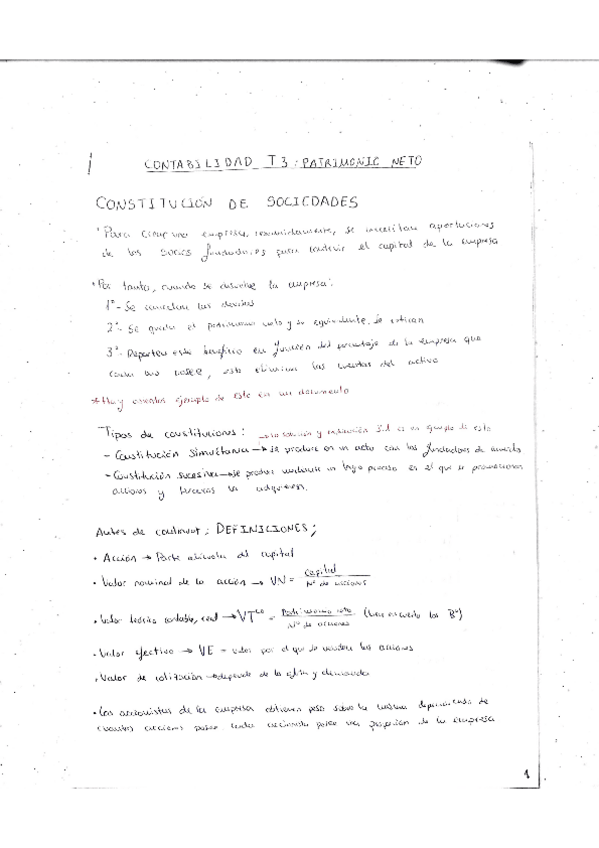 CONTABILIDAD T3: PATRIMONIO NETO
CONSTITUCIÓN DE SOCIEDADES
Para crear una empresa, se necesitan aportaciones
de los socios fundadores para el capital de la empresa
Por tanto, cuando se disuelve la empresa:
1º- Se cancelan las deudas
2º- Se queda el patrimonio neto y su equivalente, se
3º- este beneficio en función del porcentaje de la empresa que
cada uno posee, las cuentas del activo
*Hay ejemplo de este en un documento
Tipos de constituciones: → 3.1 es un ejemplo de esto
- Constitución simultánea → se produce en un acto con los fundadores de acuerdo
- Constitución sucesiva → se produce mediante un largo proceso en el que se promocionan
acciones y terceros las adquieren.
Antes de continuar; DEFINICIONES;
• Acción → Parte alícuota del capital
• Valor nominal de la acción → VN = Capital / Nº de acciones
• Valor teórico contable, → VT = Patrimonio neto / Nº de acciones
• Valor efectivo → VE = valor por el que se venden las acciones
• Valor de cotización → depende de la oferta y demanda
• Los accionistas de la empresa obtienen peso sobre la misma dependiendo de
cuantas acciones posean, cada accionista posee una proporción de la empresa
1